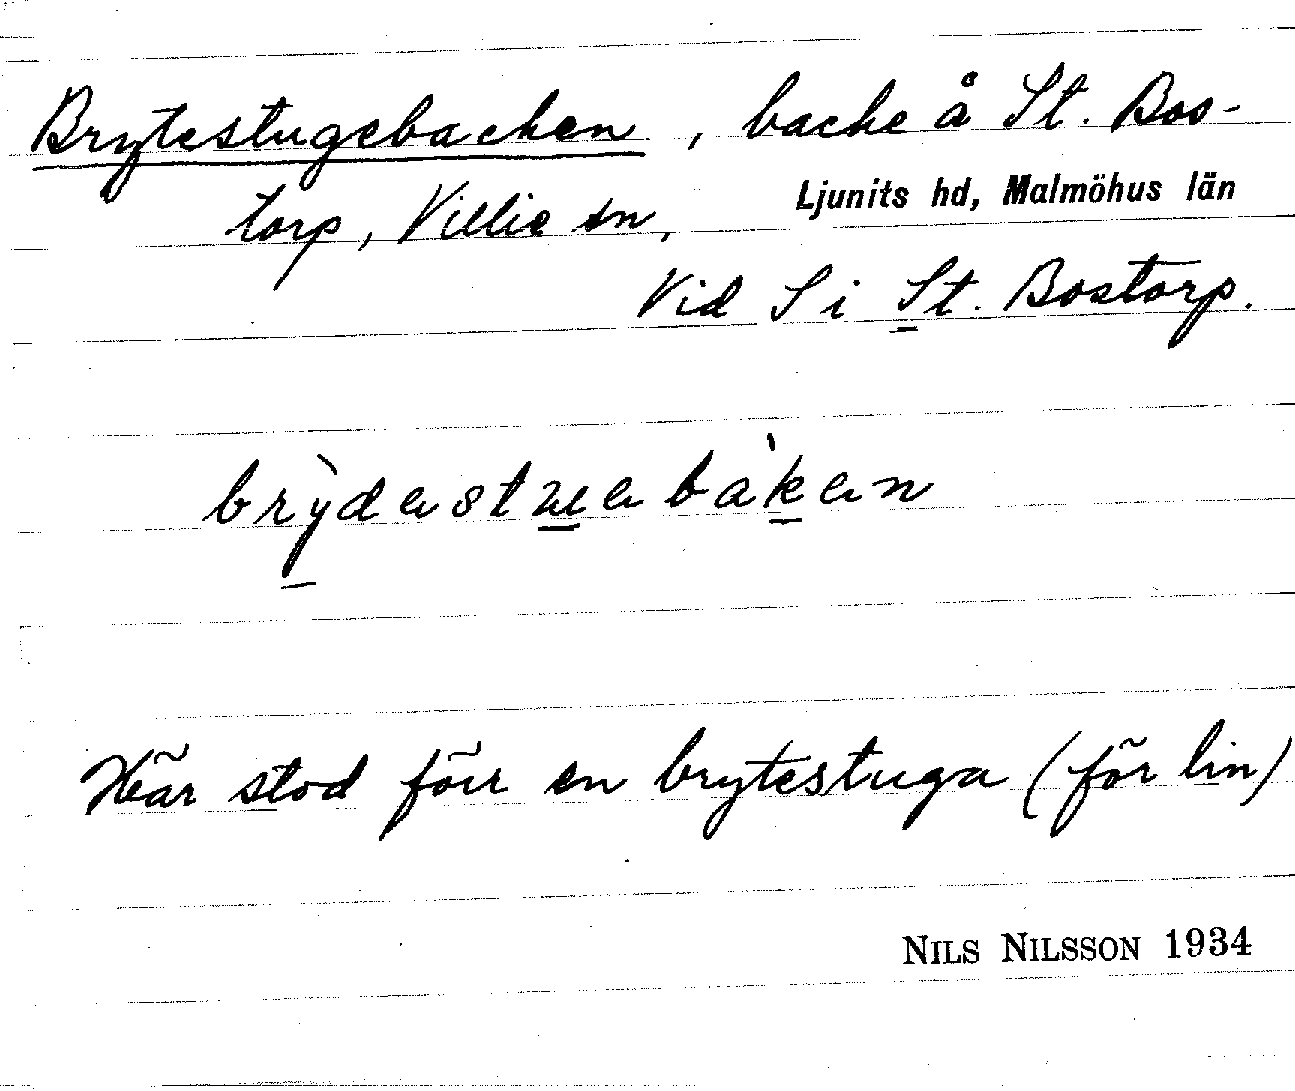 Brytestugebacken, backe å St. Bos-
torp, Villie sn, Ljunits hd, Malmöhus län
Vid S i St. Bostorp.
brỳdastuabàkan
Här stod förr en brytestuga (för lin)
NILS NILSSON 1934